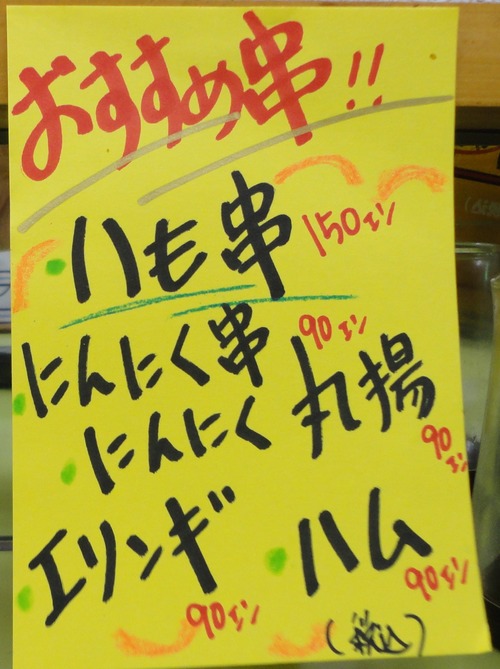 おすすめ串!!
ハモ串 150エン
にんにく串 90エン
にんにく丸揚 90エン
エリンギ 90エン
ハム 90エン
(税込)